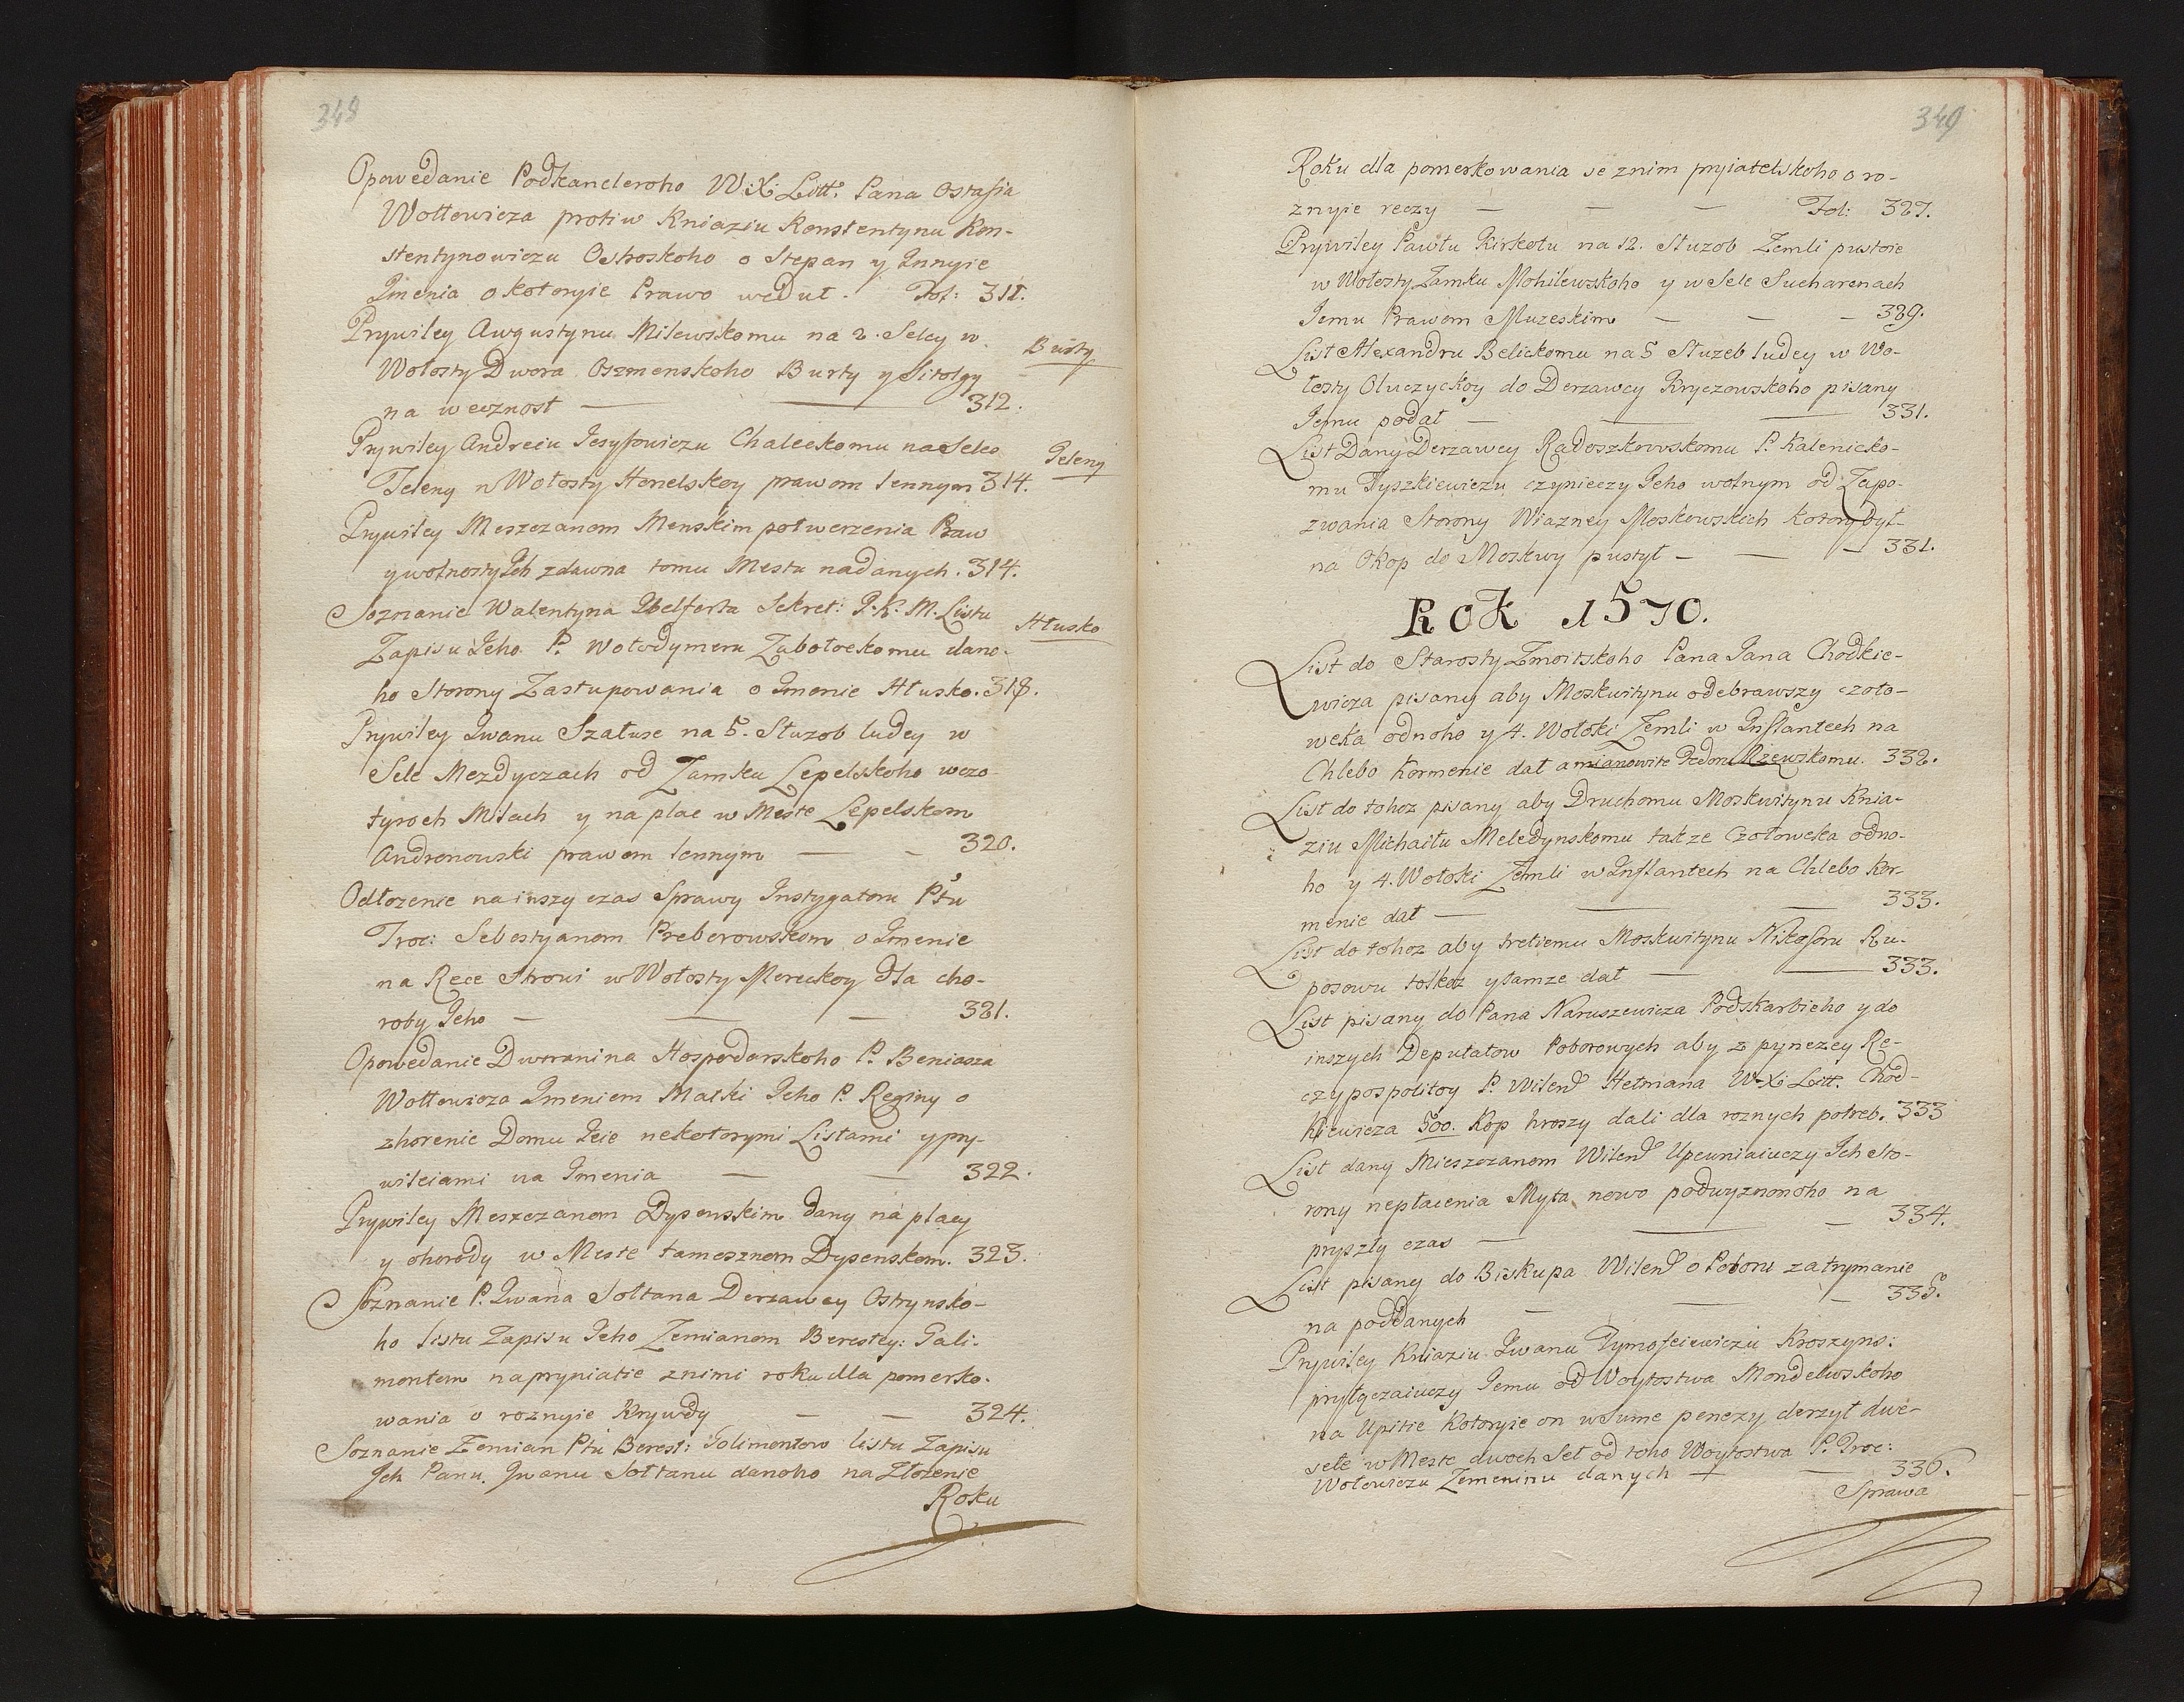 348
Opowedanie Podkancleroho W. X. Litt. Pana Ostafia
Wołłowicza protiw Kniaziu Konstentynu Kon-
stentynowiczu Ostroskoho o Stepan y Innyie
Imenia o kotoryie Prawo wedut. Fol: 311.
Prywiley Awgustynu Milewskomu na 2. Selcy w
Wołosty Dwora Oszmenskoho Burty y Sitolgy
na wecznost — — 312.
Burty
Prywiley Andreiu Jesyfowiczu Chaleckomu na Seleo
Jeleny w Wołosty Homelskoy prawom lennym 314.
Jeleny
Prywiley Meszczanom Menskim potwerzenia Praw
y wolnosty Ich zdawna tomu Mestu nadanych. 314.
Soznanie Walentyna Ubelferta Sekret: J. K. M. Listu
Zapisu Jeho P. Wołodymeru Zabołockomu dano-
ho Storony Zastupowania o Imenie Hłusko. 318.
Hłusko
Prywiley Iwanu Szałuse na 5. Słuzob ludey w
Sele Mezdyczach od Zamku Lepelskoho wczo-
tyroch Milach y na plac w Meste Lepelskom
Andronowski prawom lennym — — 320.
Odłozenie na inszy czas Sprawy Instygatoru Ptu
Troc: Sebestyanom Preberowskom o Imenie
na Rece Strowi w Wołosty Mereckoy dla cho-
roby Jeho — — — 321.
Opowedanie Dworanina Hospodarskoho P. Beniasza
Wołłowicza Imeniem Matki Jeho P. Reginy o
zhorenie Domu Jeie nekotorymi Listami y pry-
wileiami na Imenia — — 322.
Prywiley Meszczanom Dysenskim dany na placy
y ohorody w Meste tamesznom Dysenskom. 323.
Soznanie P. Iwana Sołtana Derzawcy Ostrynsko-
ho listu Zapisu Jeho Zemianom Berestey: Gali-
montom na pryniatie z nimi roku dla pomerko-
wania o roznyie Krywdy — — 324.
Soznanie Zemian Ptu Berest: Golimontow listu Zapisu
Ich Panu Iwanu Sołtanu danoho na Złozenie
Roku
349
Roku dla pomerkowania se z nim pryiatelskoho o ro-
znyie reczy — — — Fol: 327.
Prywiley Pawłu Kirkołu na 12. Słuzob Zemli pustoie
w Wołosty Zamku Mohilewskoho y w Sele Sucharenach
Jemu Prawom Muzeskim — — — 329.
List Alexandru Belickomu na 5 Słuzeb ludey w Wo-
łosty Oluczyckoy do Derzawcy Kryczowskoho pisany
Jemu podał — — — 331.
List Dany Derzawcy Radoszkowskomu P. Kalenicko-
mu Tyszkiewiczu czynieczy Jeho wolnym od Zapo-
zwania Storony Wiazney Moskowskich kotory był
na Okop do Moskwy pustył — — — 331.
Rok 1570.
List do Starosty Zmoitskoho Pana Jana Chodkie-
wicza pisany aby Moskwitynu odebrawszy czoło-
weka odnoho y 4. Wołoki Zemli w Inflantech na
Chlebo Kormenie dał a mianowite Fedoru Rzewskomu. 332.
List do tohoz pisany aby Druchomu Moskwitynu Knia-
ziu Michaiłu Meledynskomu takze Czołoweka odno-
ho y 4. Wołoki Zemli w Inflantech na Chlebo kor-
menie dał — — — 333.
List do tohoz aby tretiemu Moskwitynu Nikoforu Ru-
posowu tolkoz y tamze dał — — 333.
List pisany do Pana Naruszewicza Podskarbieho y do
inszych Deputatow Poborowych aby z pynezey Re-
czypospolitoy P. Wilend Hetmana W. X. Litt. Chod-
kiewicza 500. Kop hroszy dali dla roznych potreb. 333
List dany Mieszczanom Wilend Upewniaiuczy Ich sto-
rony nepłacenia Myta nowo podwyznonoho na
pryszły czas — — — 334.
List pisany do Biskupa Wilend o Poboru zatrymanie
na poddanych — — — 335.
Prywiley Kniaziu Iwanu Tymofeiewiczu Kroszyns:
pryłączaiuczy Jemu od Woytostwa Mondelwskoho
na Upitie kotoryie on w Sume penezy derzył dwe
sele w Meste dwoch Sel od toho Woytostwa P. Troc:
Wołowiczu Zemeninu danych — — 336.
Sprawa